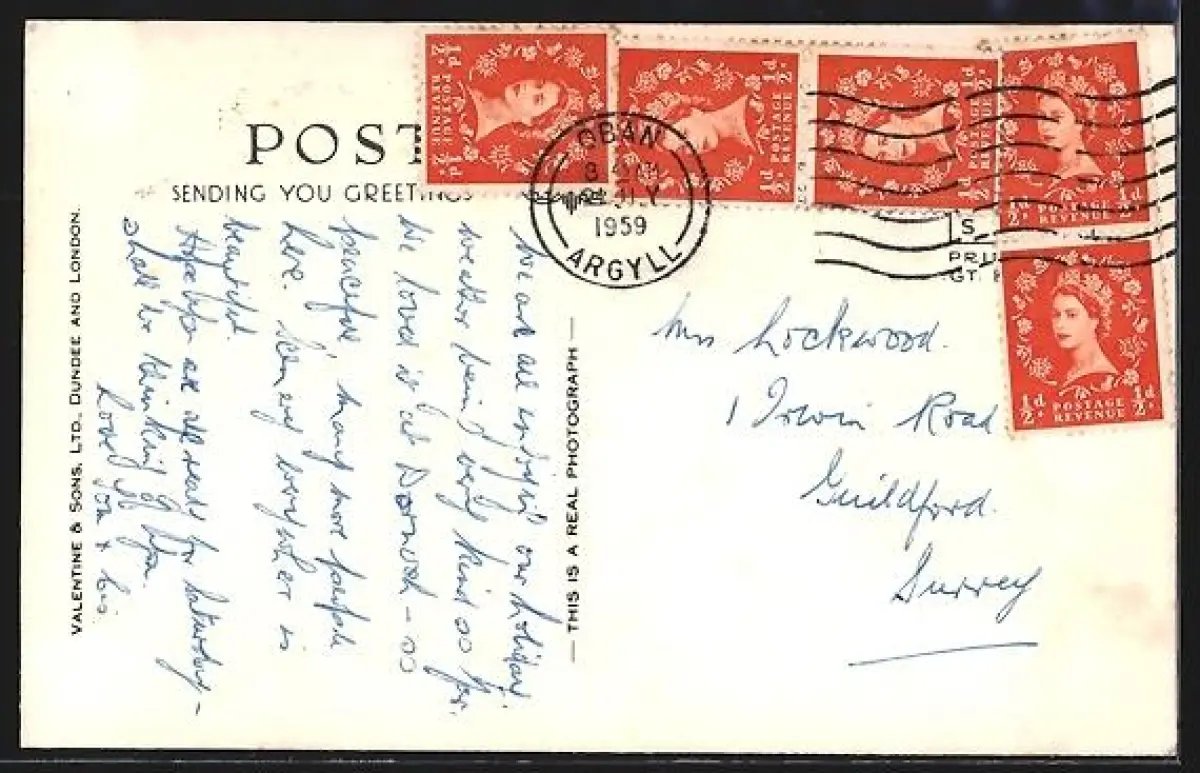 POST
SENDING YOU GREETINGS
VALENTINE & SONS, LTD., DUNDEE AND LONDON.
— THIS IS A REAL PHOTOGRAPH —
We are all enjoying our holiday
weather being very kind so far.
We loved it at Dornoch - so
peaceful, many more people
here. Scenery everywhere is
beautiful.
Hope you are all ready for Saturday -
shall be thinking of you.
Love
OBAN
1959
ARGYLL
½d POSTAGE REVENUE ½d
½d POSTAGE REVENUE ½d
½d POSTAGE REVENUE ½d
½d POSTAGE REVENUE ½d
½d POSTAGE REVENUE ½d
S
PRI
GT.
Mrs Lockwood.
1 Irwin Road
Guildford.
Surrey